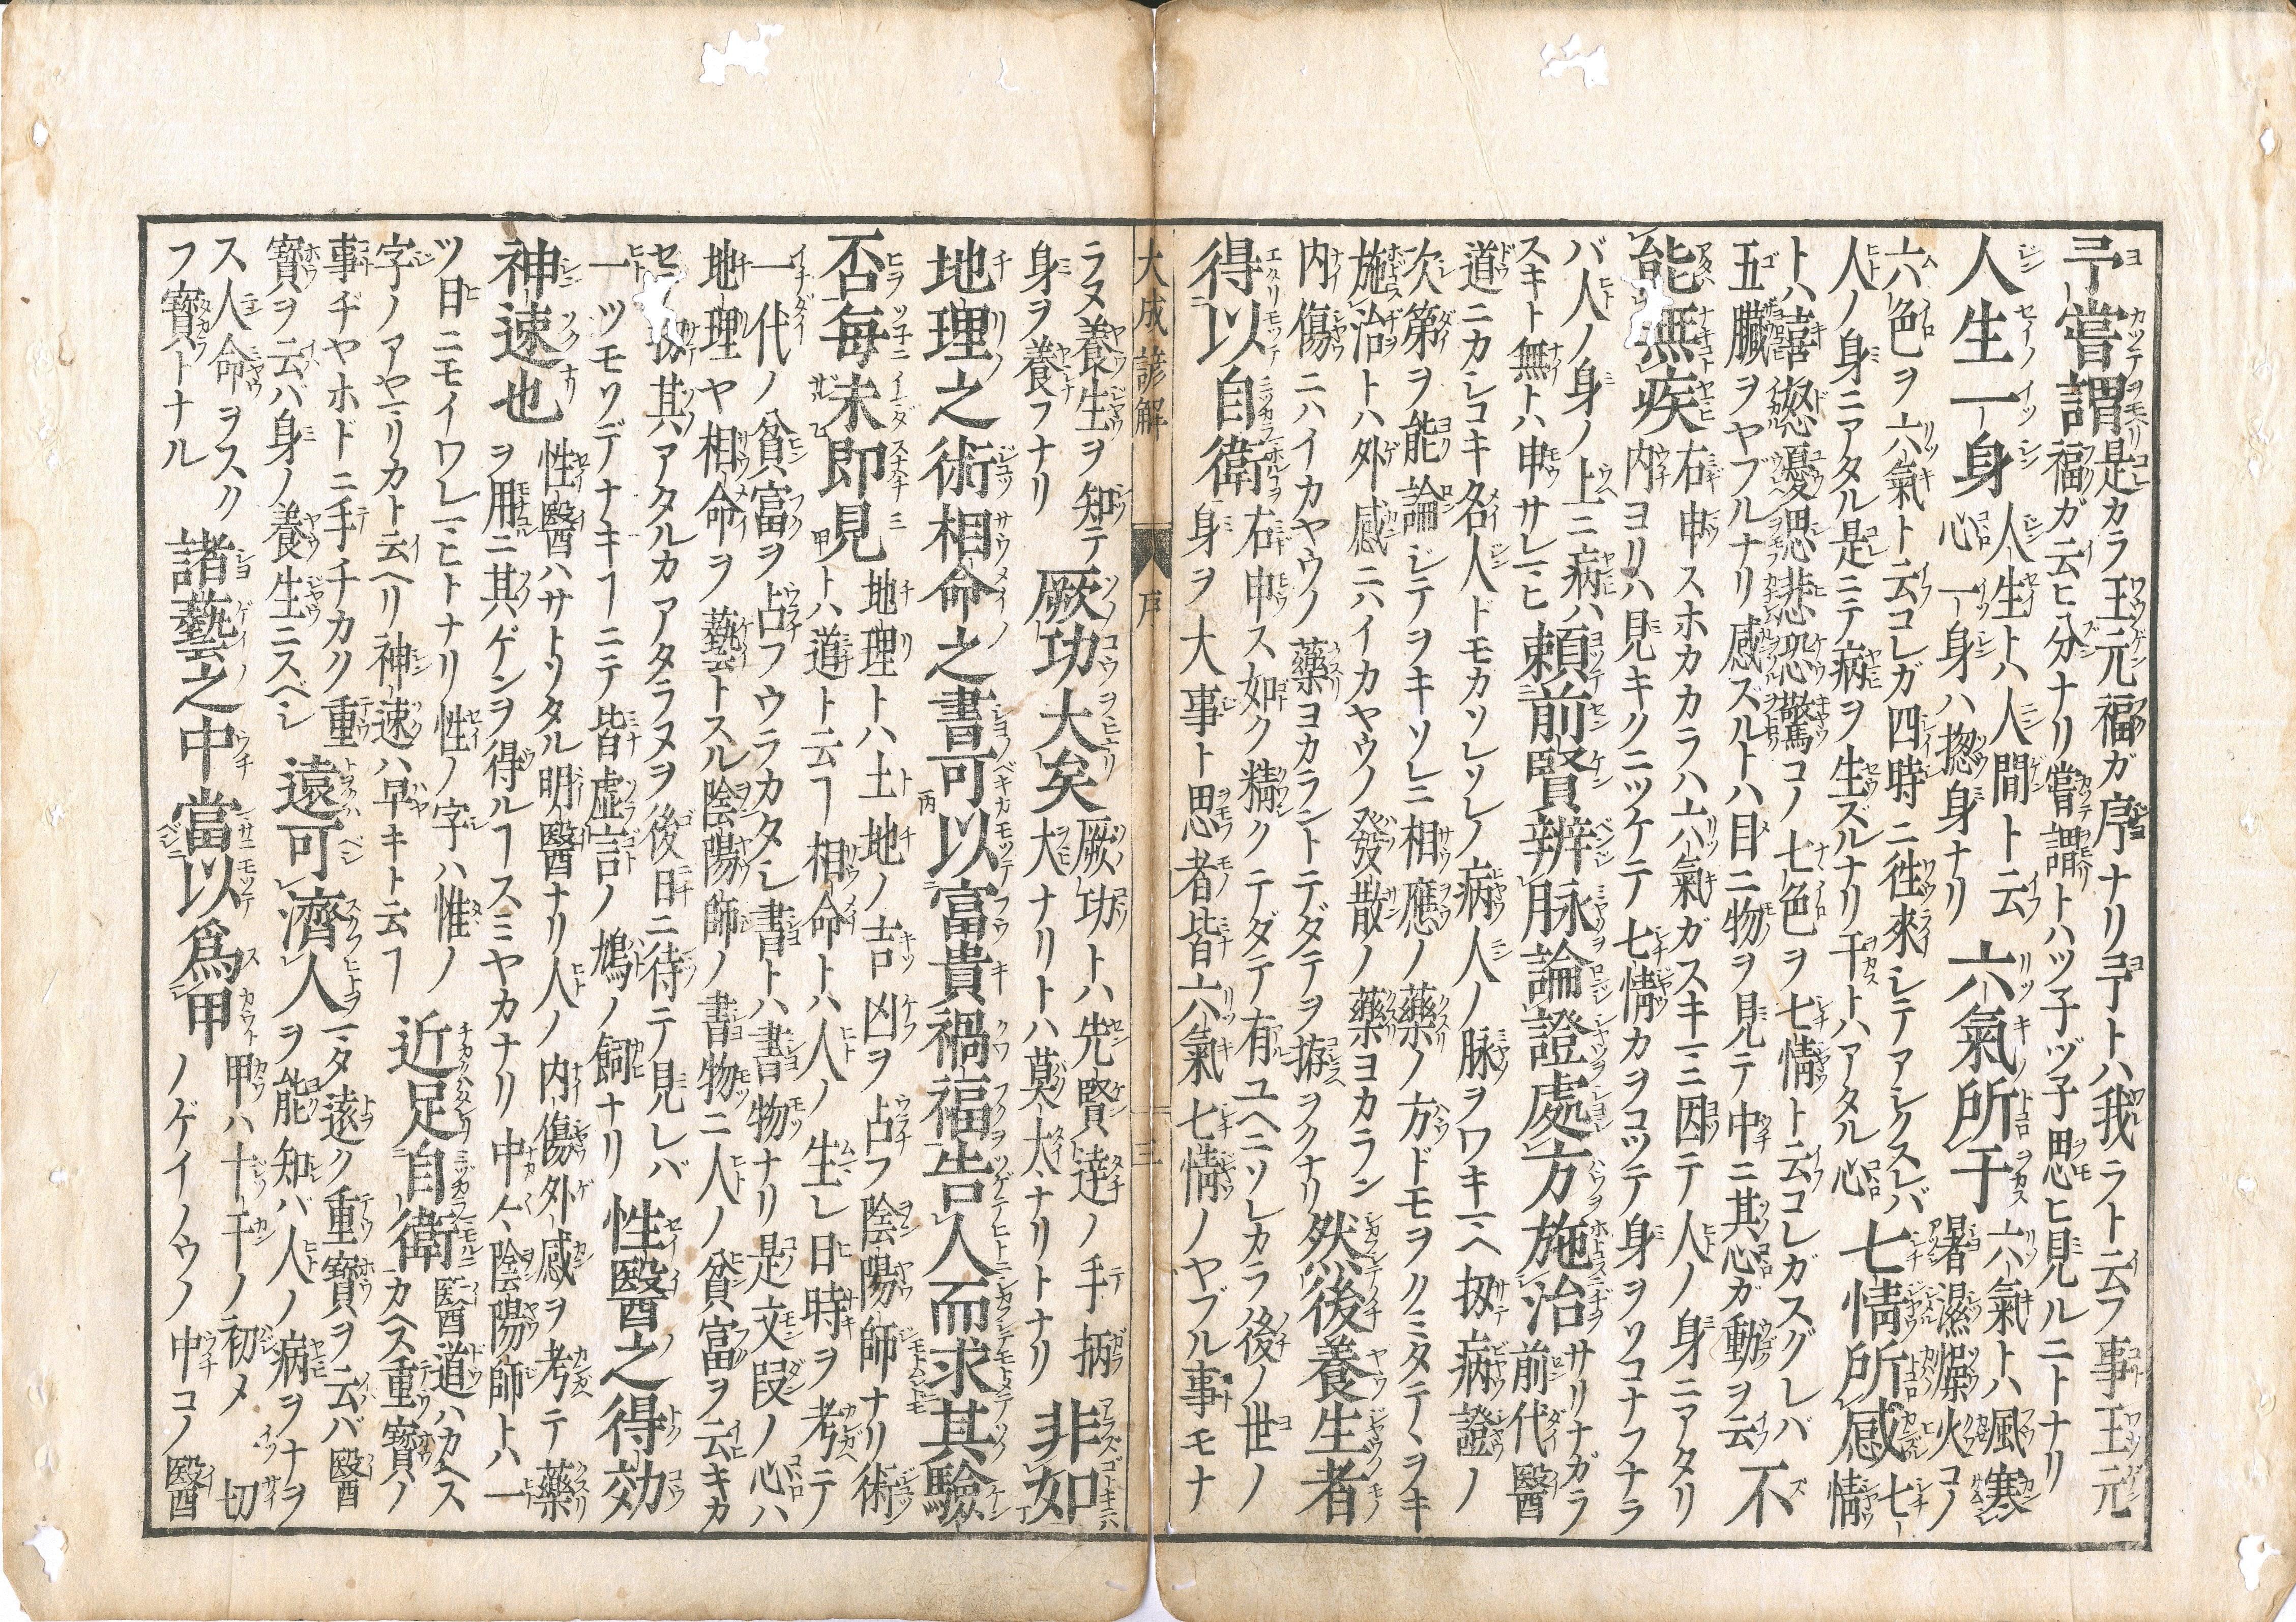 予嘗謂是カラ王元福ガ序ナリ予トハ我ラト云フ事王元
福ガ云ヒ分ナリ嘗謂トハツ子ヅ子思ヒ見ルニトナリ
人生一身人生トハ人間ト云六氣所干六氣トハ風寒
心一身ハ揔身ナリ暑濕燥火コノ
六色ヲ六氣ト云コレガ四時ニ徃來シテアシクスレバ
人ノ身ニアタル是ニテ病ヲ生ズルナリ干トハアタル心七情所感七情
トハ喜怒憂思悲恐驚コノ七色ヲ七情ト云コレガスグレバ
五臟ヲヤブルナリ感ズルトハ目ニ物ヲ見テ中ニ其心ガ動ヲ云不
能無疾右申スホカカラハ六氣ガスキ一ニ因テ人ノ身ニアタリ
内ヨリハ見キクニツケテ七情カヲコツテ身ヲソコナフナラ
バ人ノ身ノ上ニ病ハ
スキト無トハ申サレ一ヒ頼前賢辨脉論證處方施治サリナガラ
前代醫
道ニカシコキ名人ドモカソレソレノ病人ノ脉ヲワキ一ヘ扨病證ノ
次第ヲ能論シテヲキソレニ相應ノ藥ノ方ドモヲクミタテヽヲキ
施治トハ外感ニハイカヤウノ發散ノ藥ヨカラン
内傷ニハイカヤウノ藥ヨカラントテダテヲ拵ヲクナリ然後養生者
得以自衛右申ス如ク精クテダテ有ユヘニソレカラ後ノ世ノ
身ヲ大事ト思者皆六氣七情ノヤブル事モナ
大成諺解 序 三
ラヌ養生ヲ知テ厥功大矣厥功トハ先賢達ノ手柄
身ヲ養フナリ大ナリトハ莫大ナリトナリ非如
地理之術相命之書可以富貴禍福告人而求其驗
否毎未即見地理トハ土地ノ吉凶ヲ占フ陰陽師ナリ術
トハ道ト云ヿ相命トハ人ノ生レ日時ヲ考テ
一代ノ貧富ヲ占フウラカタシ書トハ書物ナリ是文段ノ心ハ
地理ヤ相命ヲ藝トスル陰陽師ノ書物ニ人ノ貧富ヲ云キカ
セ扨其アタルカアタラヌヲ後日ニ待テ見レバ
一ツモソデナキヿニテ皆虚言ノ鳩ノ飼ナリ性醫之得効
神速也性醫ハサトリタル明醫ナリ人ノ内傷外感ヲ考テ藥
ヲ用ニ其ゲンヲ得ルヿスミヤカナリ中々陰陽師トハ一
ツ日ニモイワレ一ヒトナリ性ノ字ハ惟ノ
字ノアヤ一リカト云ヘリ神速ハ早キト云ヿ近足自衛醫道ハカヘス
カヘス重寳ノ
事ヂヤホドニ手チカク重
寳ヲ云バ身ノ養生ニスベシ遠可濟人一タ遠ク重寳ヲ云バ醫
ヲ能知バ人ノ病ヲナヲ
ス人命ヲスク
フ寳トナル諸藝之中當以爲甲甲ハ十干ノ初メ一切
ノゲイノウノ中コノ醫